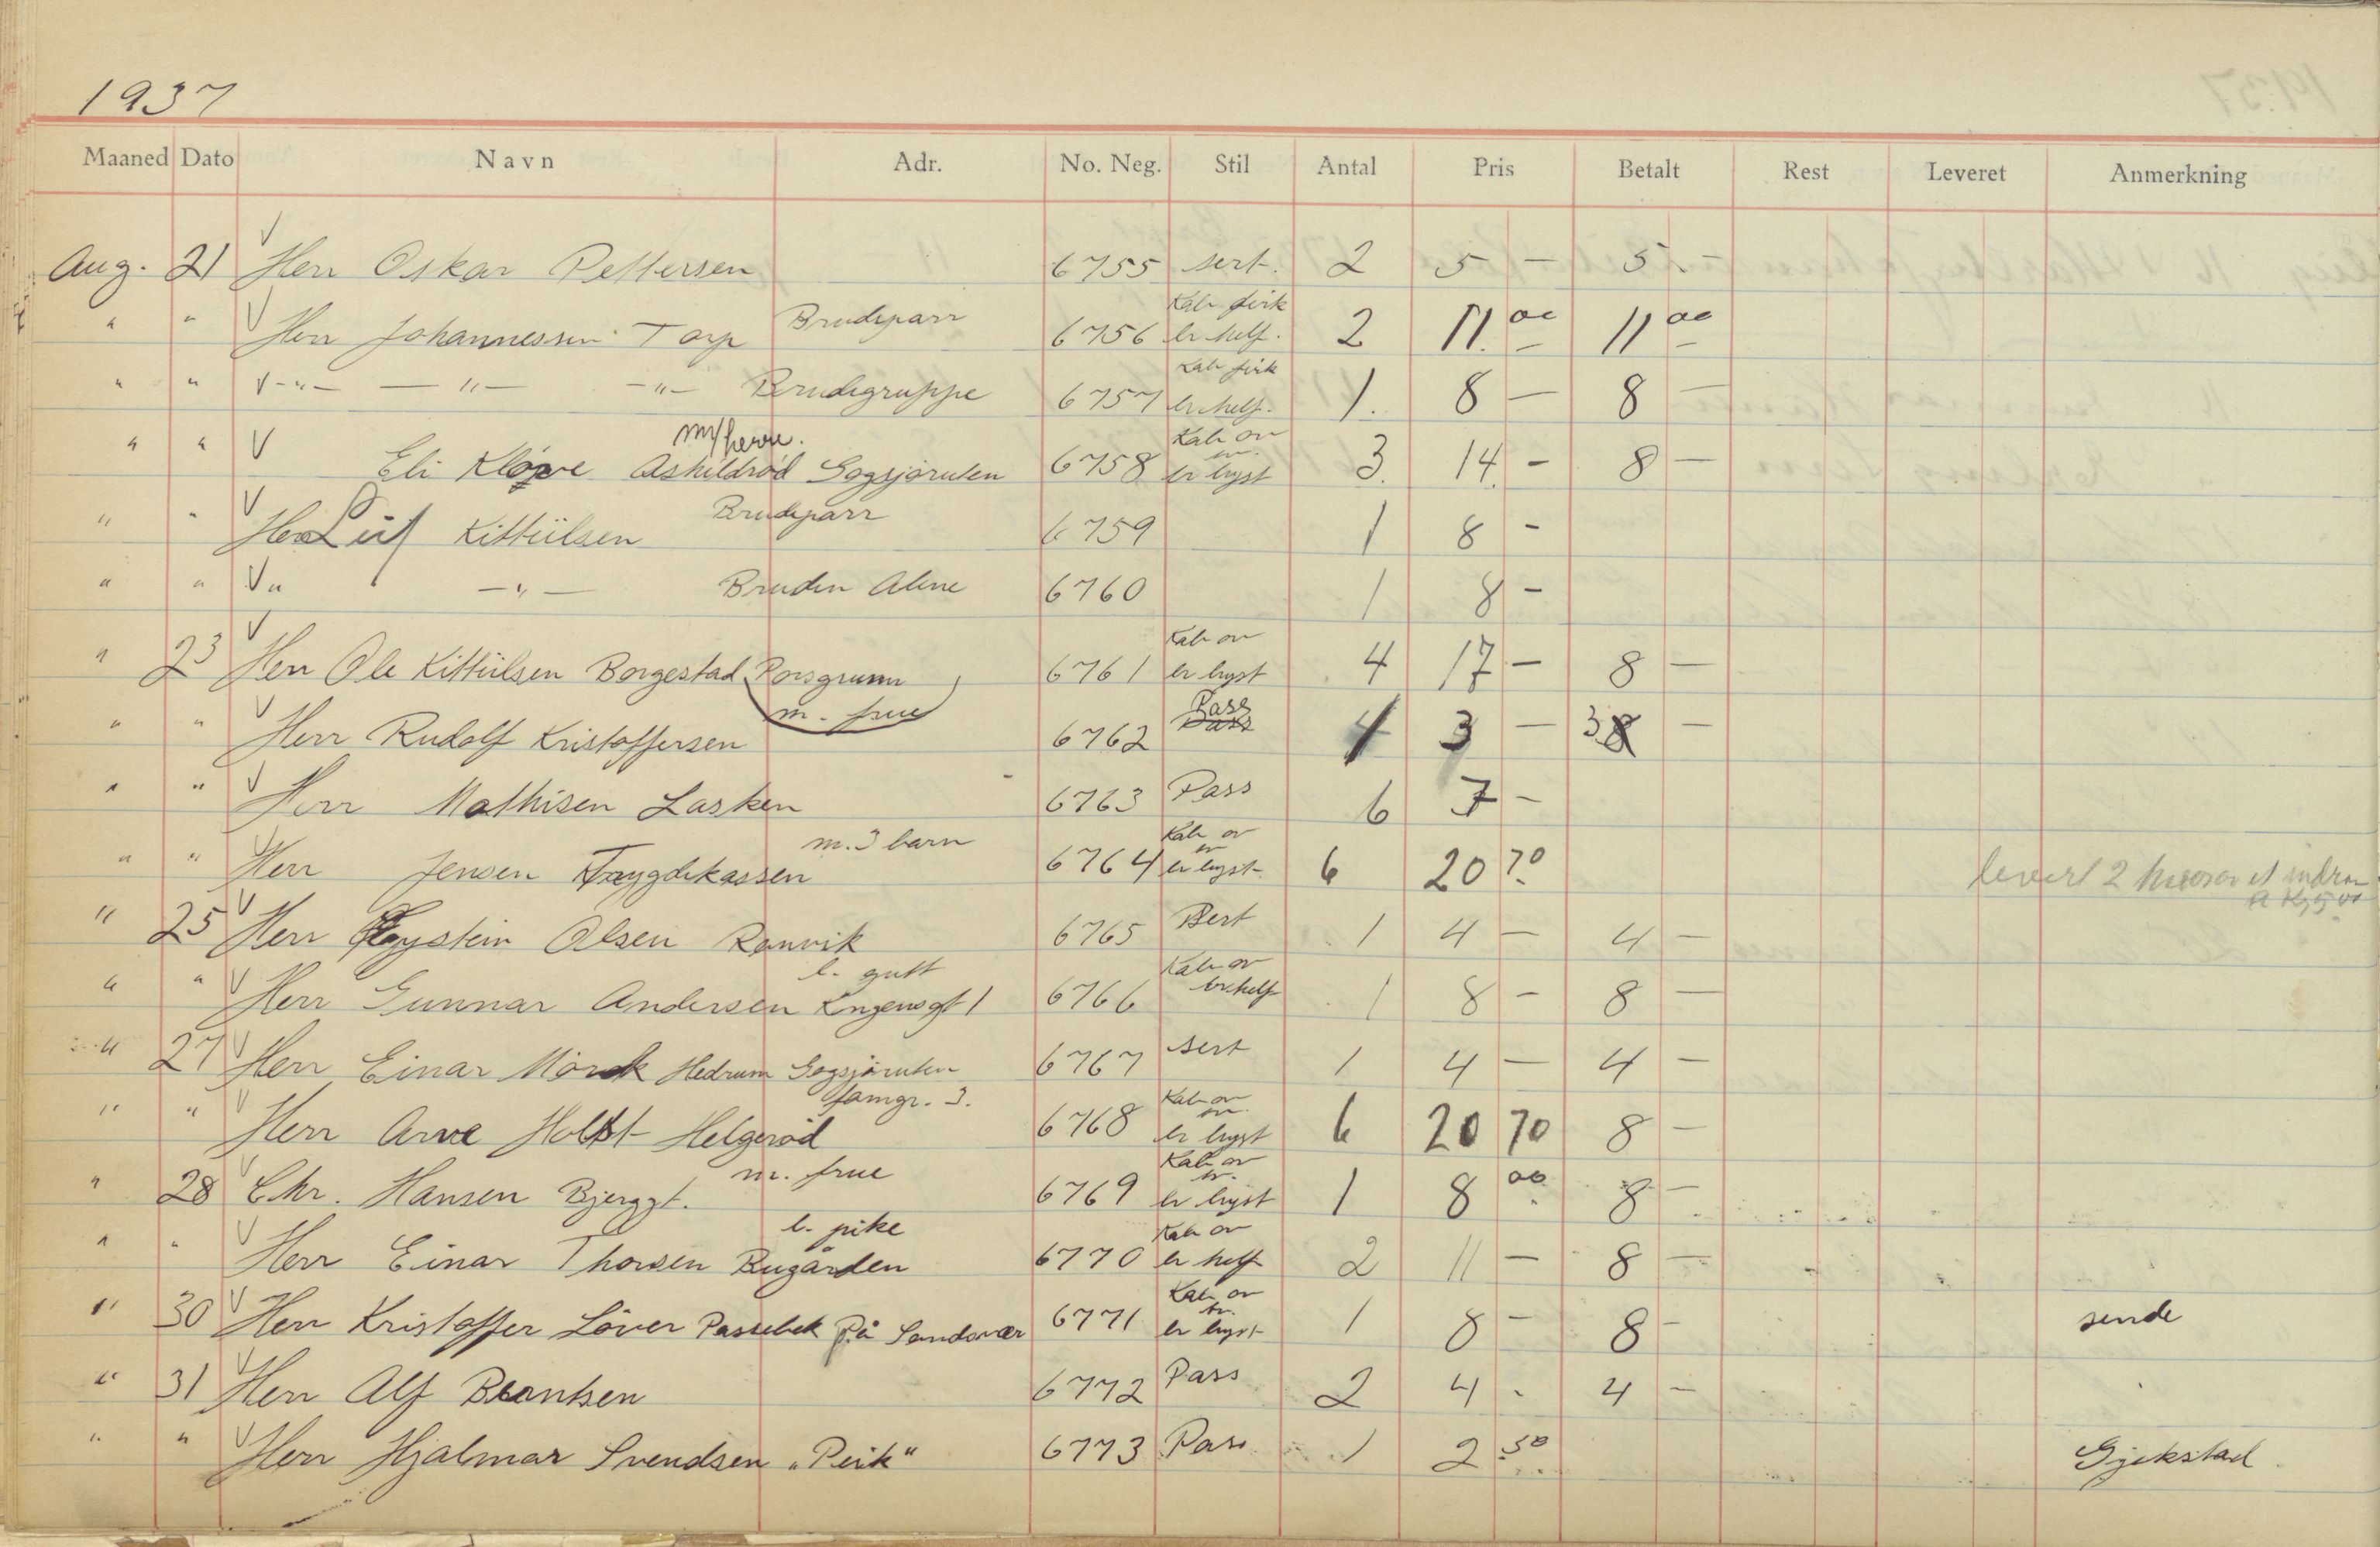 1937
Maaned Dato Navn Adr. No. Neg. Stil Antal Pris Betalt Rest Leveret Anmerkning
Aug. 21 V Herr Oskar Pettersen 6755 sert. 2 5 - 5 -
" " V Herr Johannessen Torp Brudeparr 6756 Kab firk br. helf. 2 11 00 11 00
" " V -"- -"- -"- Brudegruppe 6757 Kab firk br helf. 1. 8 - 8 -
" " V Eli Kløpve Askildrød m/herre. Gogsjøruten 6758 Kab ov br lyst 3. 14 - 8 -
" " V Herr Leif Kittilsen Brudeparr 6759 1 8 -
" " V " -"- Bruden Alene 6760 1 8 -
" 23 V Herr Ole Kittilsen Borgestad Porsgrunn m. frue 6761 Kab ov br lyst 4 17 - 8 -
" " V Herr Rudolf Kristoffersen 6762 Pass 3 - 3 8 -
" " V Herr Mathisen Lasken 6763 Pass 6 7 -
" " V Herr Jensen Trygdekassen m. 3 barn 6764 Kab ov br lyst 6 20 70 levert 2
" 25 V Herr Øystein Olsen Ranvik 6765 Sert 1 4 - 4 -
" " V Herr Gunnar Andersen l. gutt Kngensgt 1 6766 Kab ov br. helf 1 8 - 8 -
" 27 V Herr Einar Mørk Hedrum Gogsjøruten 6767 sert 1 4 - 4 -
" " V Herr Arve Holst Helgerød famgr. 3. 6768 Kab ov br lyst 6 20 70 8 -
" 28 V Chr. Hansen Bjerggt. m. frue 6769 Kab ov br lyst 1 8 00 8 -
" " V Herr Einar Thorsen l. pike Bugården 6770 Kab ov br helf 2 11 - 8 -
" 30 V Herr Kristoffer Løver Passebek på Sandsvær 6771 Kab ov br lyst 1 8 - 8 - sende
" 31 V Herr Alf Berntsen 6772 Pass 2 4 - 4 -
" " V Herr Hjalmar Svendsen "Peik" 6773 Pass 1 2 50 Gjekstad